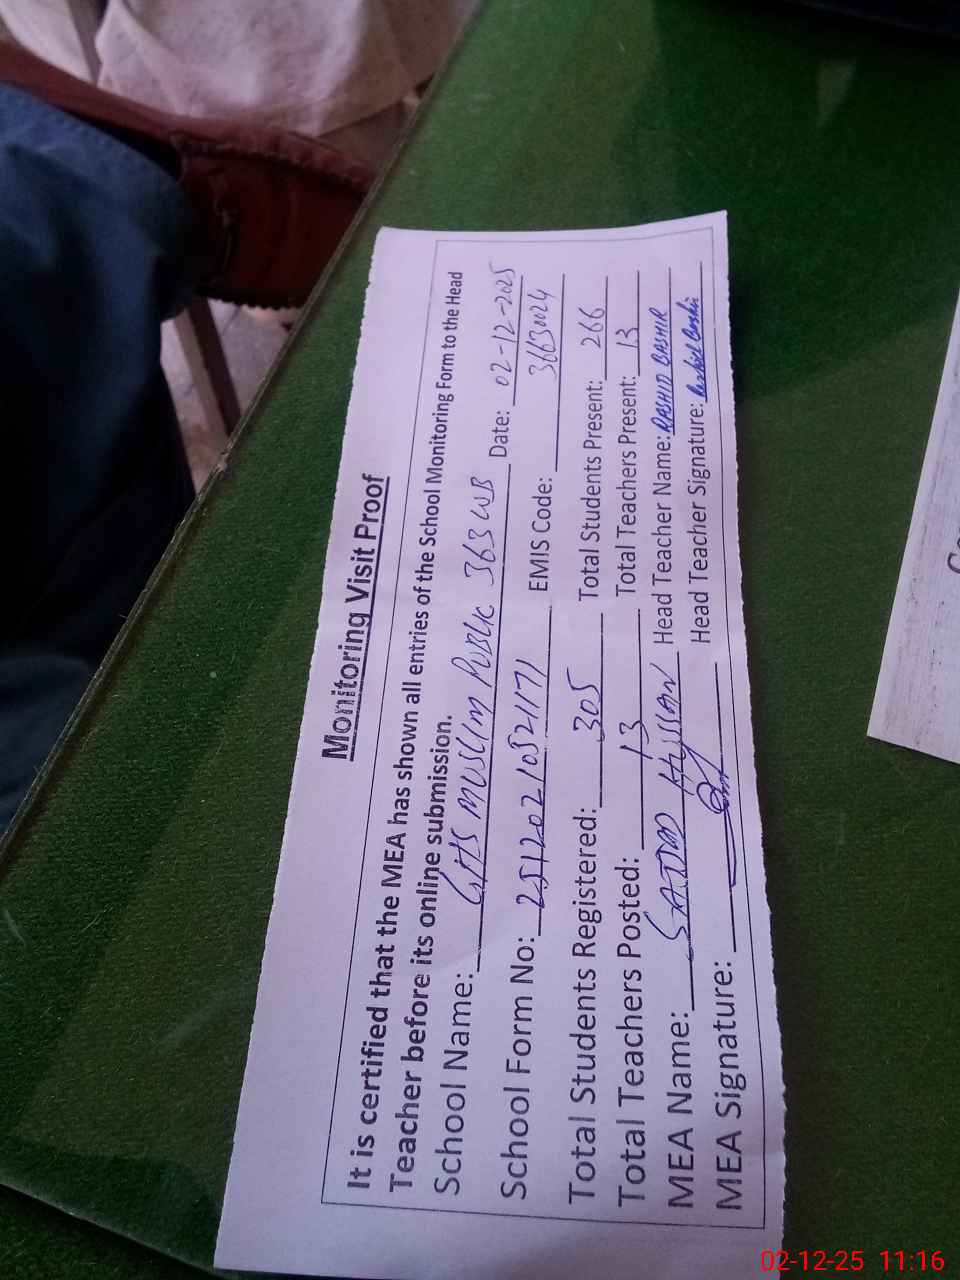 Monitoring Visit Proof
It is certified that the MEA has shown all entries of the School Monitoring Form to the Head
Teacher before its online submission.
School Name: GHS MUSLIM PUBLIC 363 WB Date: 02-12-2025
School Form No: 2512021052171 EMIS Code: 36630024
Total Students Registered: 305 Total Students Present: 266
Total Teachers Posted: 13 Total Teachers Present: 13
MEA Name: SAJJAD HUSSAIN Head Teacher Name: RASHID BASHIR
MEA Signature: Head Teacher Signature: Rashid Bashir
02-12-25 11:16